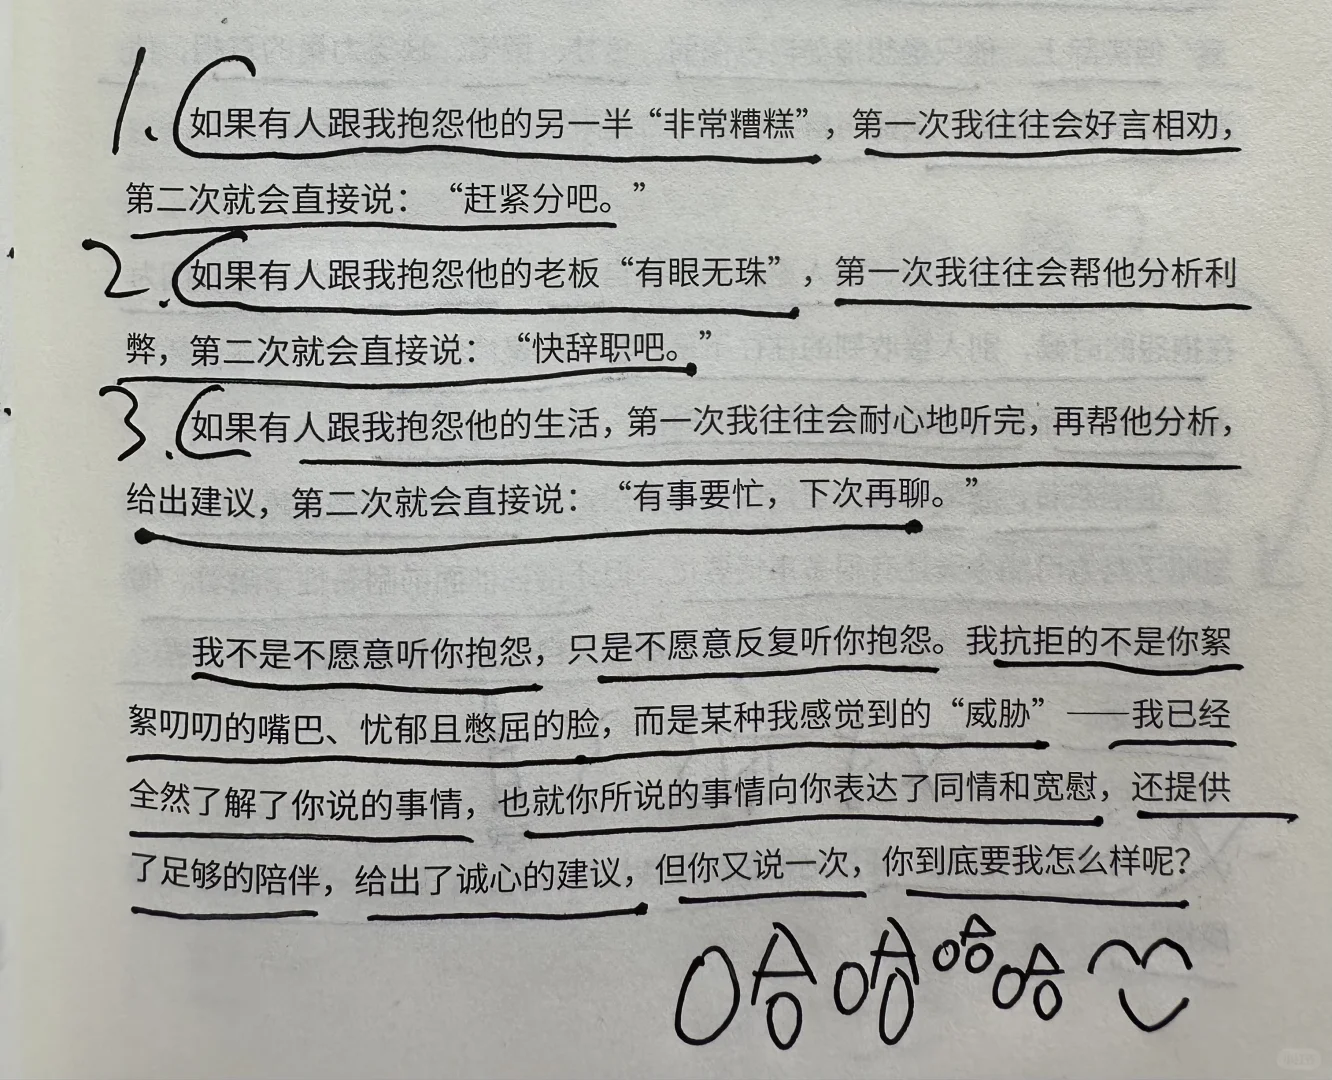 1. 如果有人跟我抱怨他的另一半“非常糟糕”，第一次我往往会好言相劝，
第二次就会直接说：“赶紧分吧。”
2. 如果有人跟我抱怨他的老板“有眼无珠”，第一次我往往会帮他分析利
弊，第二次就会直接说：“快辞职吧。”
3. 如果有人跟我抱怨他的生活，第一次我往往会耐心地听完，再帮他分析，
给出建议，第二次就会直接说：“有事要忙，下次再聊。”
我不是不愿意听你抱怨，只是不愿意反复听你抱怨。我抗拒的不是你絮
絮叨叨的嘴巴、忧郁且憋屈的脸，而是某种我感觉到的“威胁”——我已经
全然了解了你说的事情，也就你所说的事情向你表达了同情和宽慰，还提供
了足够的陪伴，给出了诚心的建议，但你又说一次，你到底要我怎么样呢？
哈哈哈哈